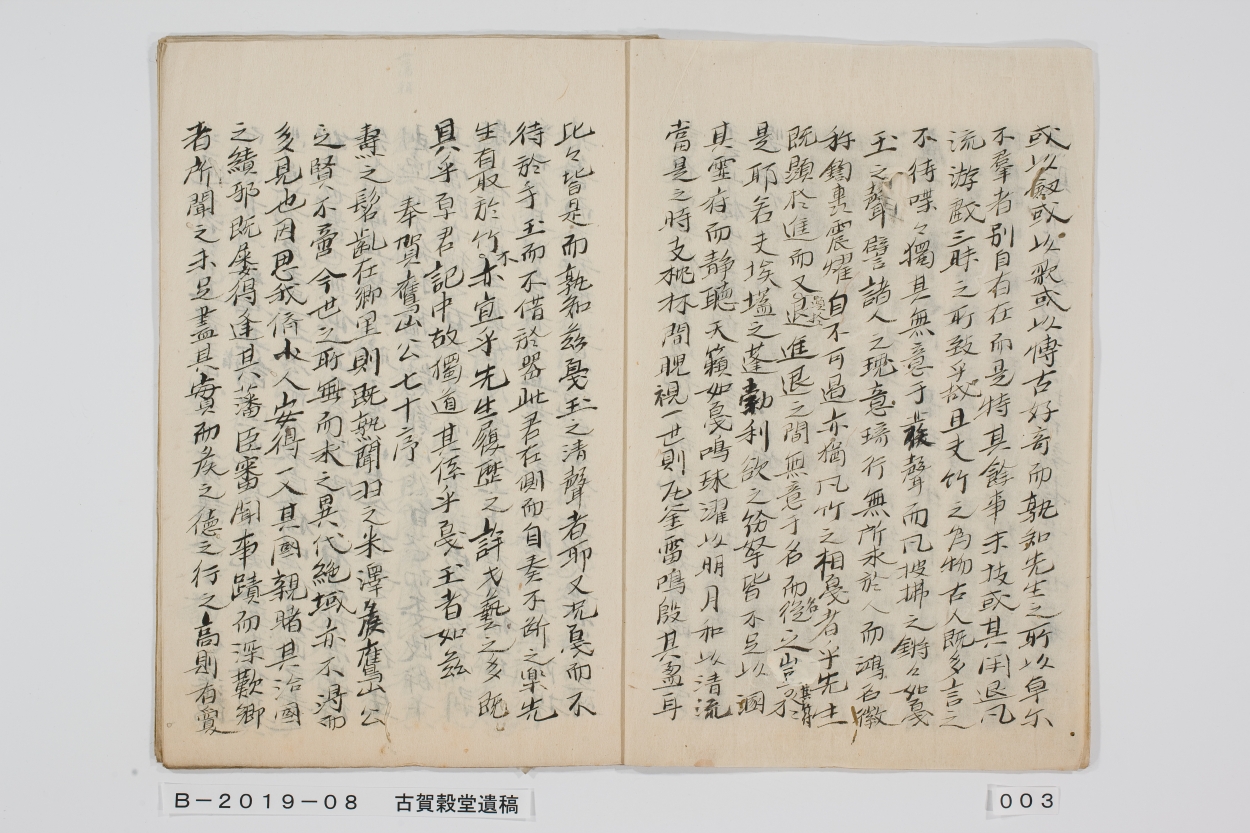 或以劔或以歌或以博古好奇而孰知先生之所以卓尓
不羣者別自有在而是特其餘事末技或其用退凡
流游戲三昧之所致乎哉且夫竹之為物古人既多言之
不待喋々獨其無意于聲而風披拂之鏘々如戞
玉之聲譬諸人之瑰意琦行無所求於人而鴻名徽
称鍧轟震燿自不可遏亦猶風竹之相戞者乎先生
既顯於進而又顯於退進退之間無意于名而名従之豈不
是耶若夫埃壒之蓬勃利欲之紛拏皆不足以溷其胷
其靈府而静聴天籟如戞鳴球濯以明月和以清流
當是之時支枕林間睨視一世則瓦釜雷鳴殷其盈耳
比々皆是而孰知茲戞玉之清聲者耶又况戞而不
待於手玉而不借於器此君在側而自奏不断之樂先
生有取於竹不亦宜乎先生履歴之詳才藝之多既
具乎草君記中故獨道其係乎戞玉者如茲
奉賀鷹山公七十序
壽之髫齔在郷里則既熟聞羽之米澤侯鷹山公
之賢不啻今世之所無而求之異代絶域亦不得而
多見也因思我儕小人安得一入其國親睹其治國
之績邪既屡得逢其藩臣審聞事蹟而深歎郷
者所聞之未足盡其實而侯之德之行之高則有愛
B－2019－08　古賀穀堂遺稿
003